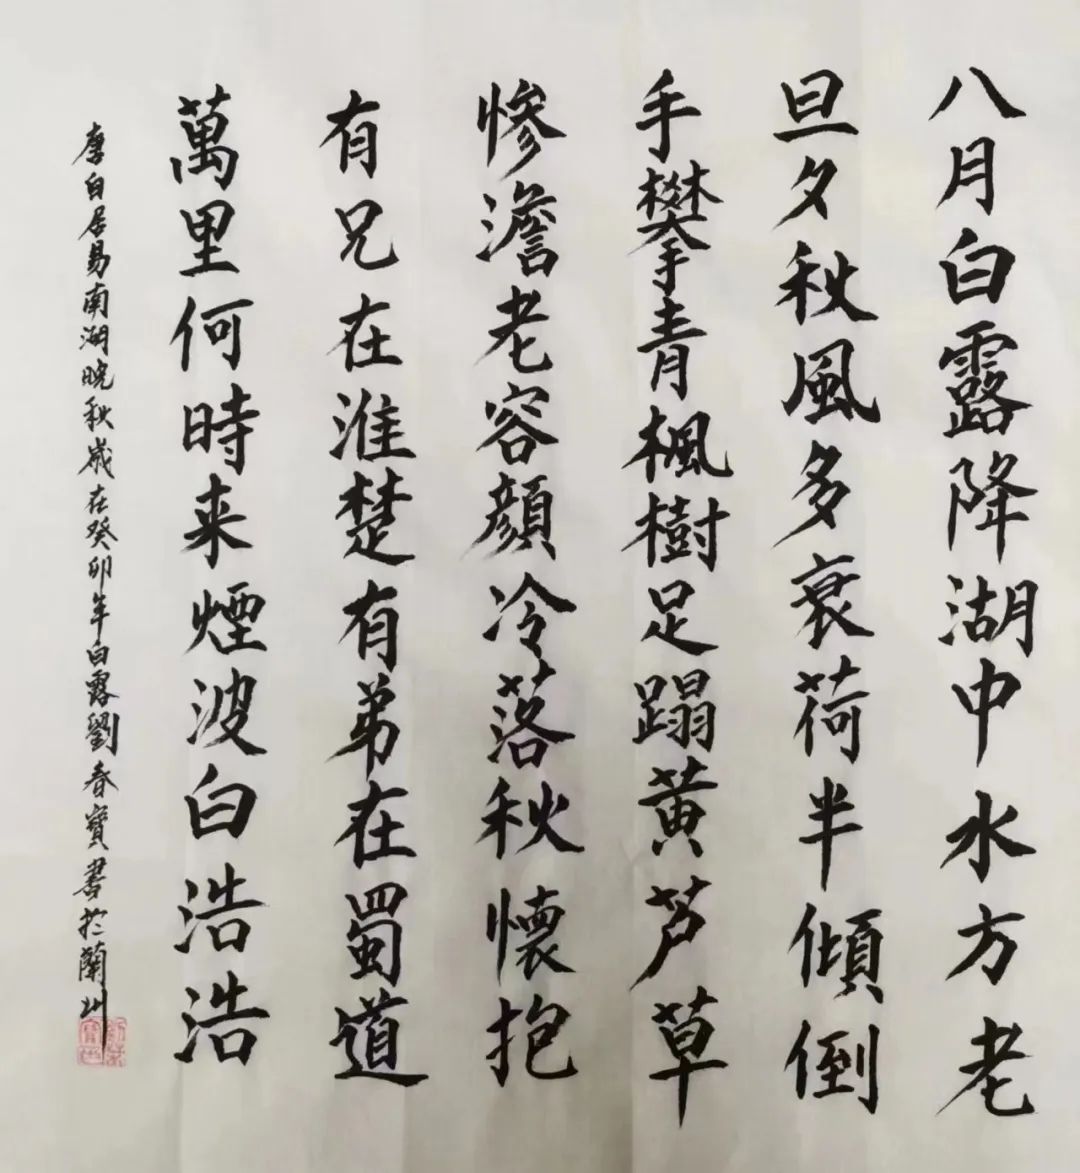 八月白露降湖中水方老
旦夕秋風多衰荷半傾倒
手攀青楓樹足蹋黄芦草
慘澹老容顔冷落秋懷抱
有兄在淮楚有弟在蜀道
萬里何時来煙波白浩浩
唐白居易南湖晚秋歲在癸卯年白露劉春寶書於蘭州